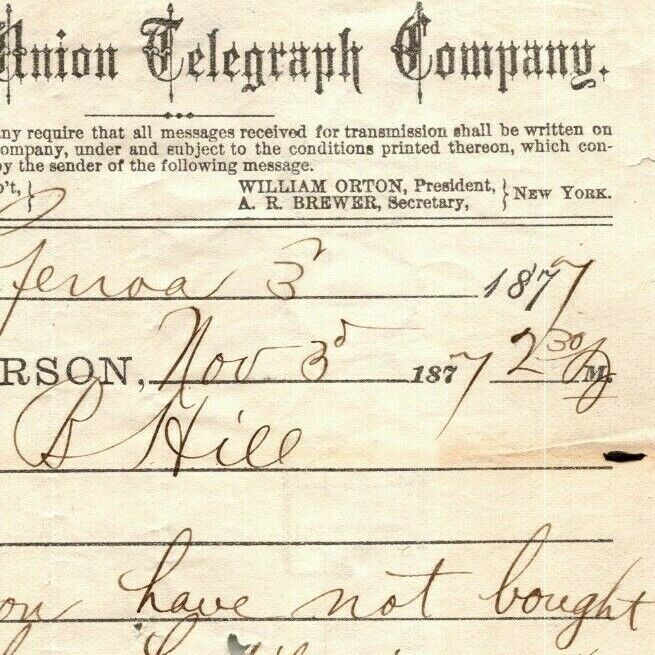 Union Telegraph Company.
ny require that all messages received for transmission shall be written on
ompany, under and subject to the conditions printed thereon, which con-
by the sender of the following message.
o't, } WILLIAM ORTON, President, } NEW YORK.
A. R. BREWER, Secretary,
Genoa 3 1877
RSON, Nov 3d 1877 2 30 P M.
B Hill
have not bought